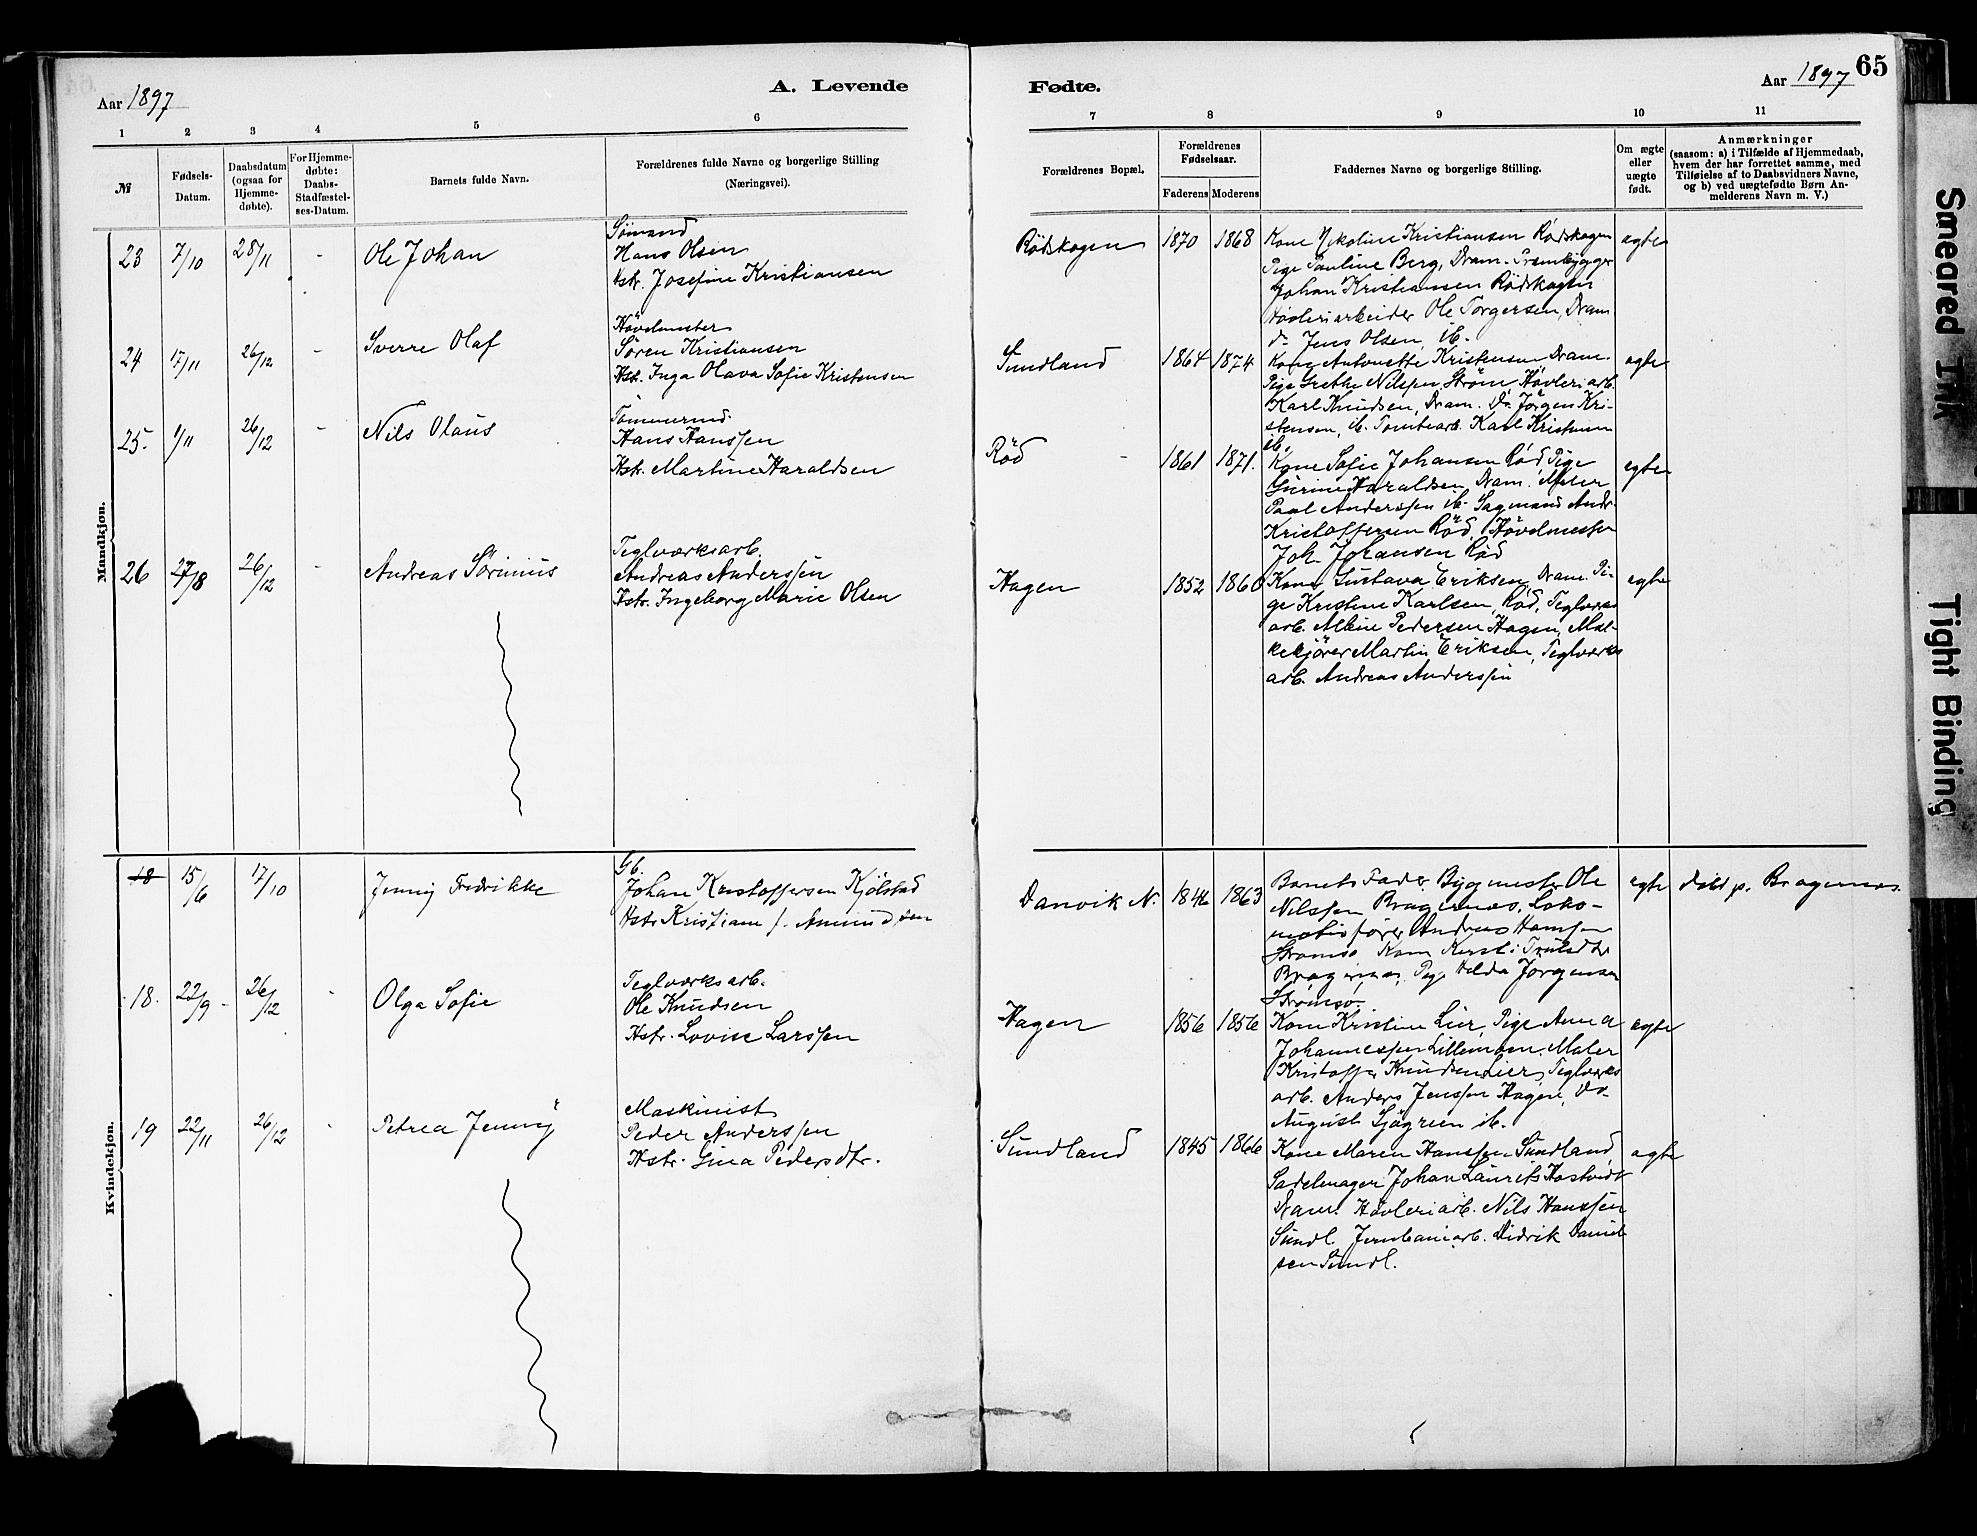 65
Aar 1897
A. Levende
Fødte.
Aar 1897
1 2 3 4 5 6 7 8 9 10 11
№
Fødsels-
Datum.
Daabsdatum
(ogsaa for
Hjemme-
døbte).
For Hjemme-
døbte:
Daabs-
Stadfæstel-
ses-Datum.
Barnets fulde Navn.
Forældrenes fulde Navne og borgerlige Stilling
(Næringsvei).
Forældrenes Bopæl.
Forældrenes
Fødselsaar.
Faderens Moderens
Faddernes Navne og borgerlige Stilling.
Om ægte
eller
uægte
født.
Anmærkninger
(saasom: a) i Tilfælde af Hjemmedaab,
hvem der har forrettet samme, med
Tilføielse af to Daabsvidners Navne,
og b) ved uægtefødte Børn An-
melderens Navn m. V.)
Mandkjøn.
23 7/10 28/11 - Ole Johan
Sømand
Hans Olsen
Hstr. Josefine Kristiansen
Rødskogen 1870 1868
Kone Nikoline Kristiansen Rødskogen
Pige Pauline Berg, Dram.
Johan Kristiansen Rødskogen
Høvleriarbeider Ole Torgersen, Dram
do Jens Olsen, ib.
ægte
24 17/11 26/12 - Sverre Olaf
Høvelmester
Søren Kristiansen
Hstr. Inga Olava Sofie Kristensen
Sundland 1864 1874
Kone Antonette Kristensen Dram.
Pige Grethe Nilssen, Strøm, Høvleriarb.
Karl Knudsen, Dram. Do Jørgen Kri-
stensen, ib. Tomtearb. Karl Kristensen
ib.
ægte
25. 1/11 26/12 - Nils Olaus
Tømmermd.
Hans Hanssen
Hstr. Martine Haraldsen
Rød - 1861 1871.
Kone Sofie Johansen Rød, Pige
Gurine Haraldsen, Dram. Maler
Paul Anderssen ib. Sagmand Andr.
Kristoffersen Rød, Høvelmester
Joh. Johansen Rød
ægte
26 27/8 26/12 - Andreas Sørinius
Teglværksarb.
Andreas Anderssen
Hstr. Ingeborg Marie Olsen
Hagen 1852 1860
Kone Gustava Eriksen, Dram. Pi-
ge Kristine Karlsen, Rød, Teglværks
arb. Albin Pedersen Hagen, Mæl-
kekjører Martin Eriksen, Teglværks
arb. Andreas Anderssen
ægte
Kvindekjøn.
18 15/6 17/10 Jenny Fredrikke
Gb.
Johan Kristoffersen Kjølstad
Hstr Kristiane f. Amundsen
Danvik N. 1846 1863
Barnets Fader, Bygmester Ole
Nilssen Bragernes, Loko-
motivfører Andreas Hanssen
Strømsø Kone Kersti Trulsdtr
Bragernes, Pige Helda Jørgensen
Strømsø.
ægte døbt p. Bragernes
18. 22/9 - 26/12 - Olga Sofie
Teglværksarb.
Ole Knudsen
Hstr. Lovise Larssen
Hagen 1856 1856
Kone Kristine Lier, Pige Anna
Johannessen Lillemoen, Maler
Kristoffer Knudsen Lier, Teglværks
arb. Anders Jenssen Hagen, Do
August Sjøgren ib.
ægte
19 22/11 26/12 - Petrea Jenny
Maskinist
Peder Anderssen
Hstr. Gina Pedersdtr.
Sundland 1845 1866
Kone Maren Hanssen Sundland,
Sadelmager Johan Laurits Hostvedt
Dram. Høvleriarb. Nils Hanssen
Sundl. Jernbanearb. Didrik Daniel-
sen Sundl.
ægte
Smeared Ink
Tight Binding